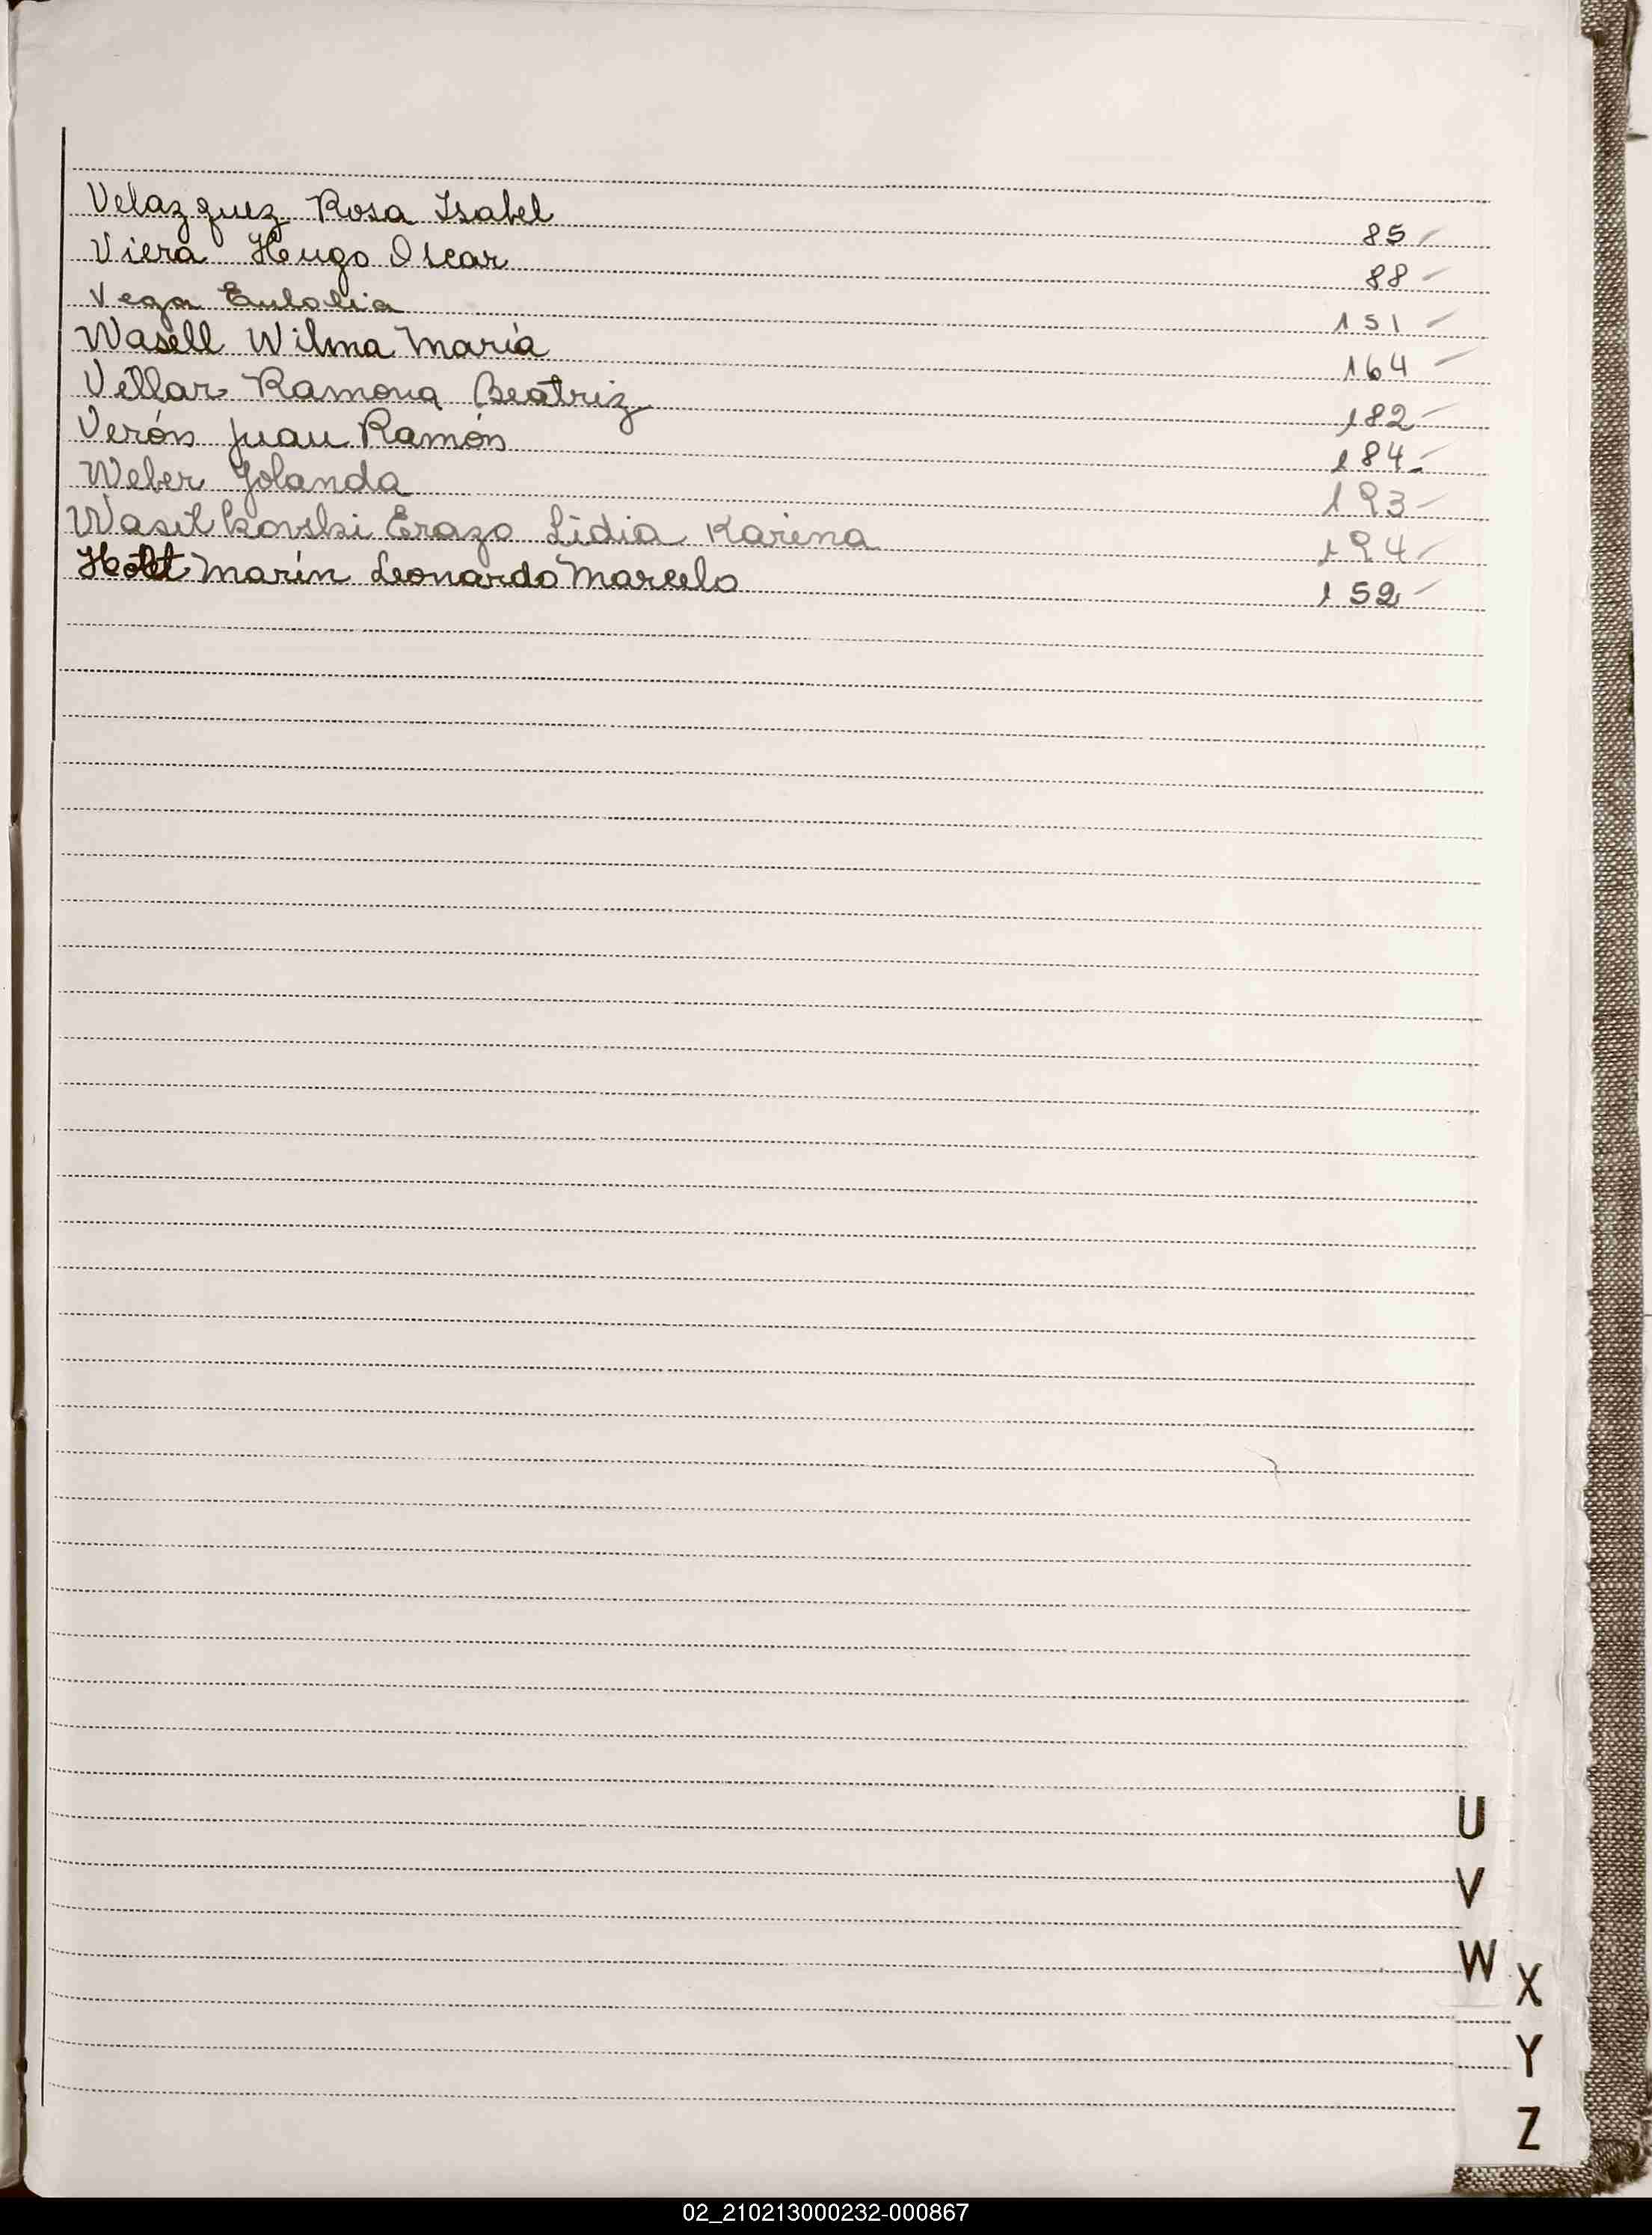 Velazquez Rosa Isabel 85
Viera Hugo Oscar 88
Vega Eulolia 151
Wasell Wilma María 164
Vellar Ramona Beatriz 182
Verón Juan Ramón 184
Weber Yolanda 193
Wasilkovski Erazo Lidia Karina 194
Marín Leonardo Marcelo 152
U
V
W
X
Y
Z
02_210213000232-000867